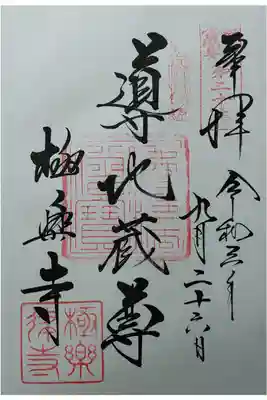 奉拝
令和三年
九月二十六日
導地蔵尊
極楽寺
極樂律寺